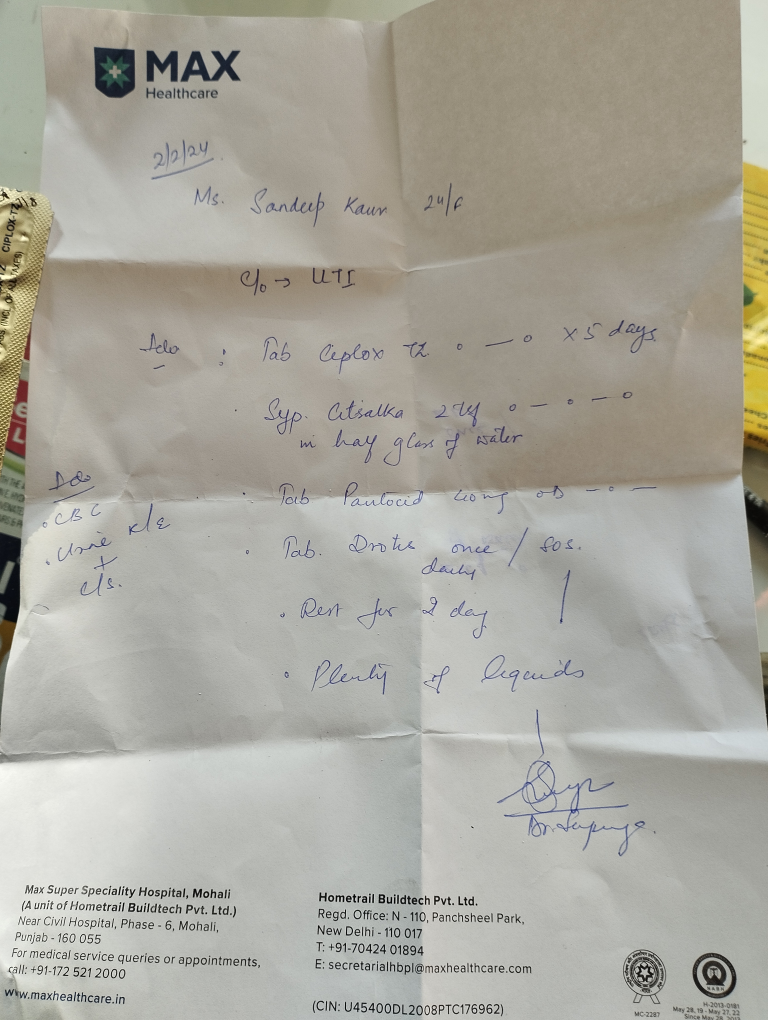 MAX
Healthcare
2/2/24
Ms. Sandeep Kaur 24/F
c/o → UTI
Ado : Tab Ciplox TZ o — o x 5 days
Syp. Citsalka 2 tsf o — o — o
in half glass of water
Tab Pantocid 40mg OD — o —
Ado
• CBC
• Urine R/E
+
c/s.
• Tab. Drotus once / SOS.
daily
• Rest for 2 day
• Plenty of liquids
Max Super Speciality Hospital, Mohali
(A unit of Hometrail Buildtech Pvt. Ltd.)
Near Civil Hospital, Phase - 6, Mohali,
Punjab - 160 055
For medical service queries or appointments,
call: +91-172 521 2000
www.maxhealthcare.in
Hometrail Buildtech Pvt. Ltd.
Regd. Office: N - 110, Panchsheel Park,
New Delhi - 110 017
T: +91-70424 01894
E: secretarialhbpl@maxhealthcare.com
(CIN: U45400DL2008PTC176962)
MC-2287
H-2013-0181
May 28, 19 - May 27, 22
CIPLOX-TZ